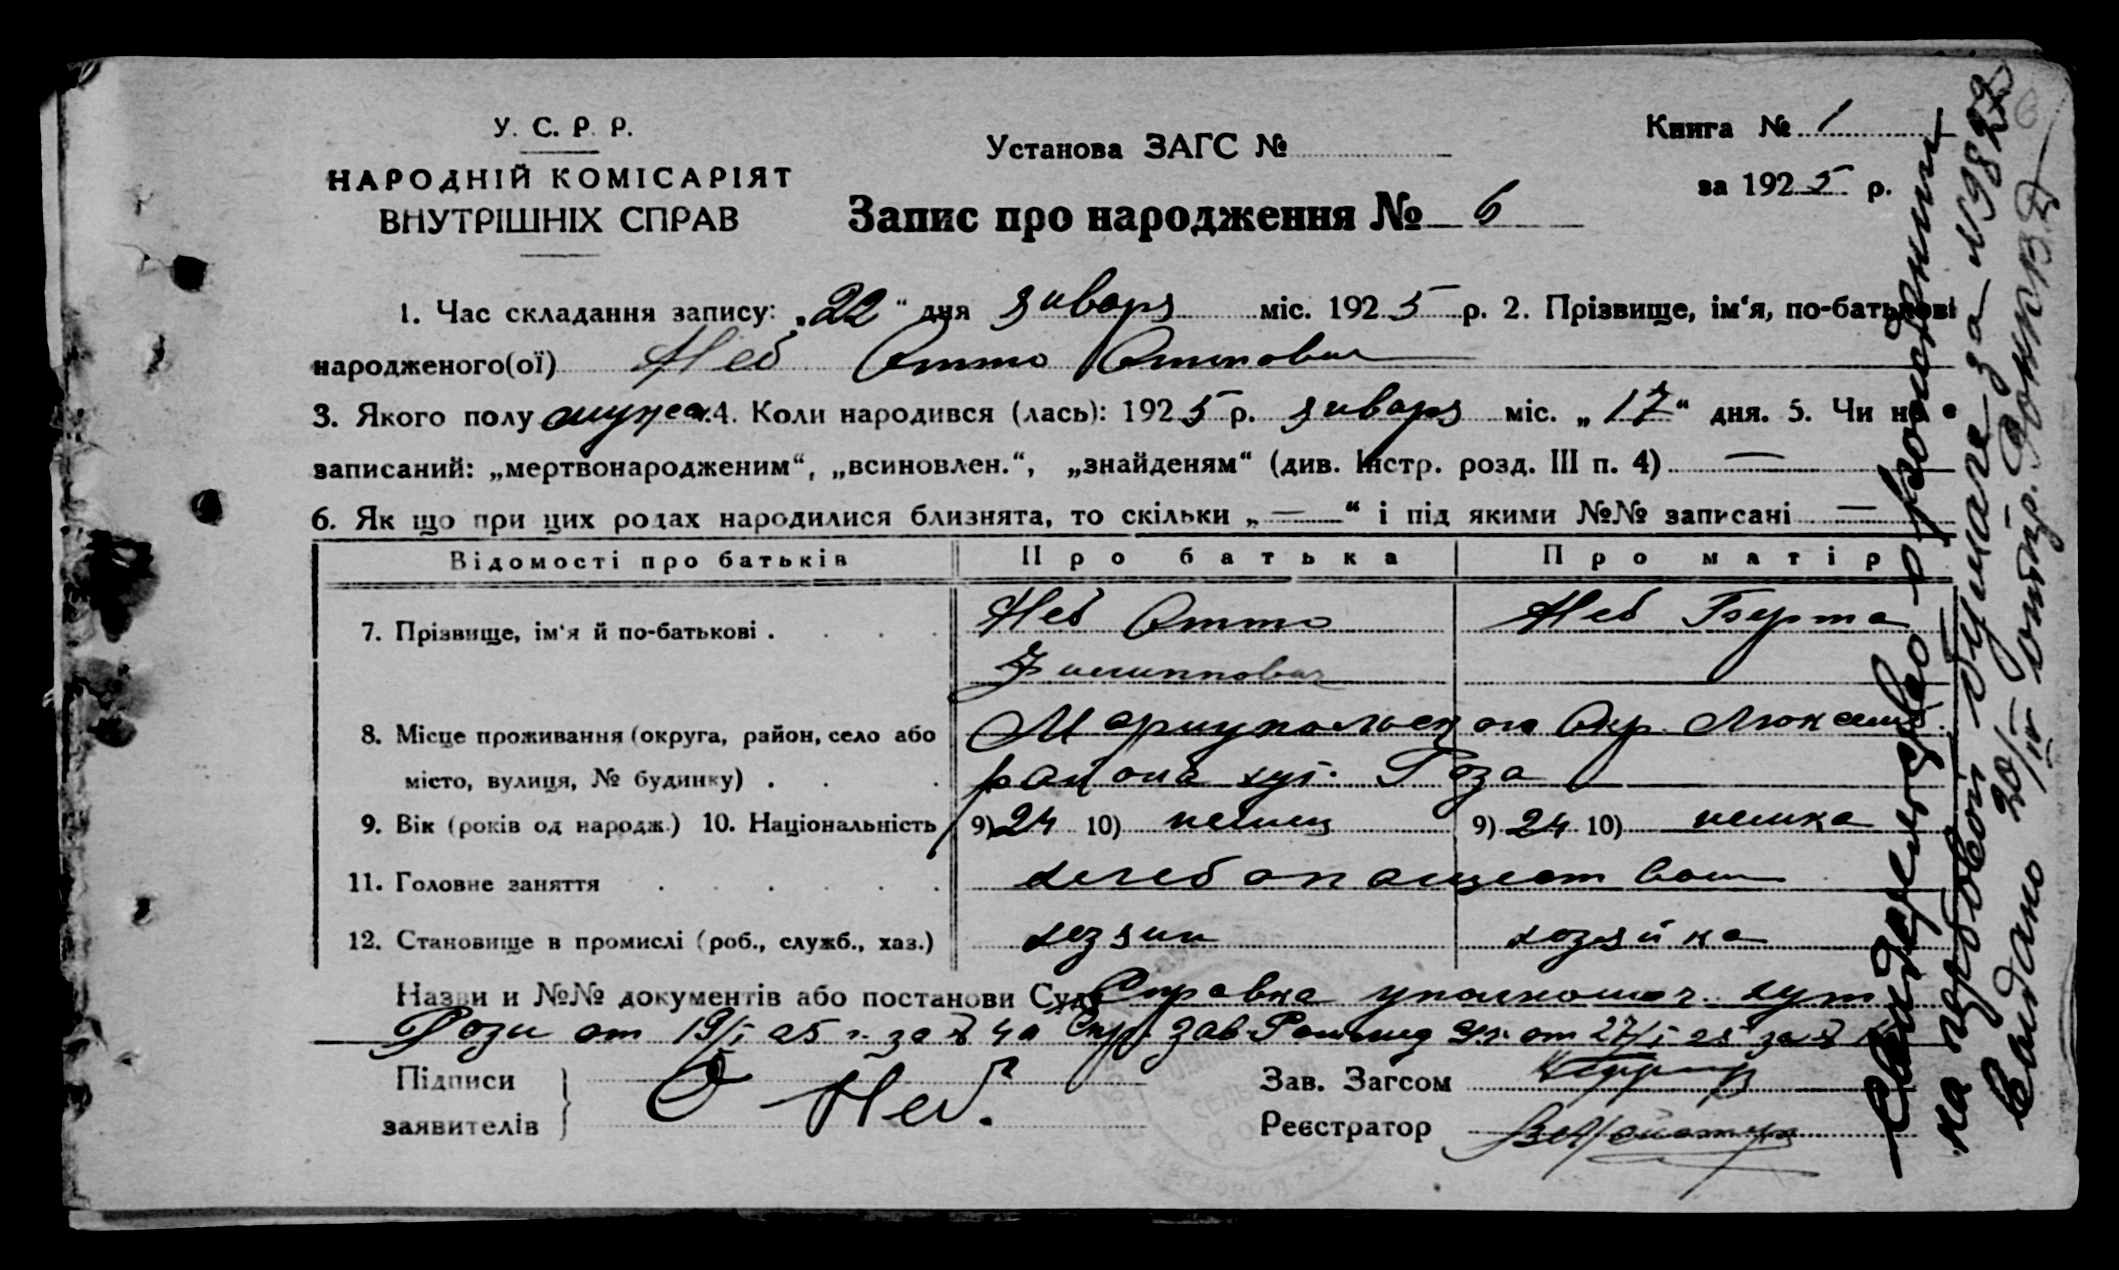 У. С. Р. Р.
НАРОДНІЙ КОМІСАРІЯТ
ВНУТРІШНІХ СПРАВ
Установа ЗАГС №
Книга № 1
за 1925 р.
Запис про народження № 6
1. Час складання запису: „22“ дня января міс. 1925 р. 2. Прізвище, ім‘я, по-батькові
народженого(ої) Неб Отто Оттович
3. Якого полу мужск. 4. Коли народився (лась): 1925 р. января міс. „17“ дня. 5. Чи не є
записаний: „мертвонародженим“, „всиновлен.“, „знайденям“ (див. Інстр. розд. III п. 4) —
6. Як що при цих родах народилися близнята, то скільки „—“ і під якими №№ записані —
Відомості про батьків Про батька Про матір
7. Прізвище, ім‘я й по-батькові . Неб Отто Неб Берта
Филиппович
8. Місце проживання (округа, район, село або Мариупольского Окр. Люксемб.
місто, вулиця, № будинку) . района хут. Роза
9. Вік (років од народж.) 10. Національність 9) 24 10) немец 9) 24 10) немка
11. Головне заняття хлебопашеством
12. Становище в промислі (роб., служб., хаз.) хозяин хозяйка
Назви и №№ документів або постанови Суду Справка уполномоч. хут.
Розы от 19/I 25 г. за № 4 и Зав от 27/I 25 за №
Підписи
заявителів
О Неб.
Зав. Загсом
Реєстратор
Свидетельство о рождении
на гербовой бумаге за № 98
Выдано 20/IV